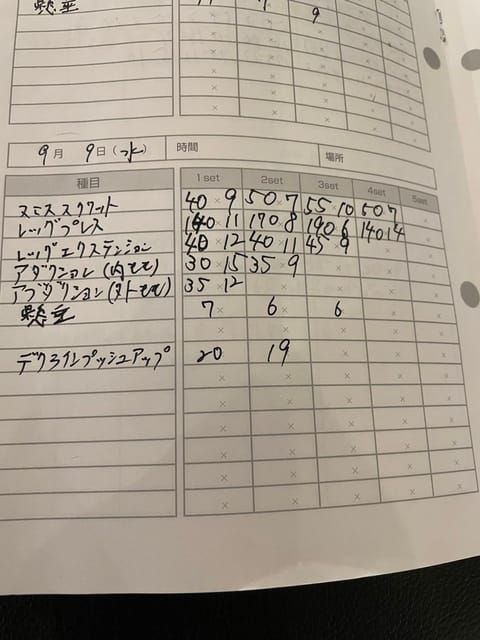 懸垂
9
9月 9日(水) 時間 場所
種目 1set 2set 3set 4set 5set
スミススクワット 40×9 50×7 55×10 50×7 ×
レッグプレス 140×11 170×8 190×6 140×14 ×
レッグエクステンション 40×12 40×11 45×9 × ×
アダクション(内もも) 30×15 35×9 × × ×
アブダクション(外もも) 35×12 × × × ×
懸垂 7× 6× 6 × ×
デクラインプッシュアップ 20 19 × × ×